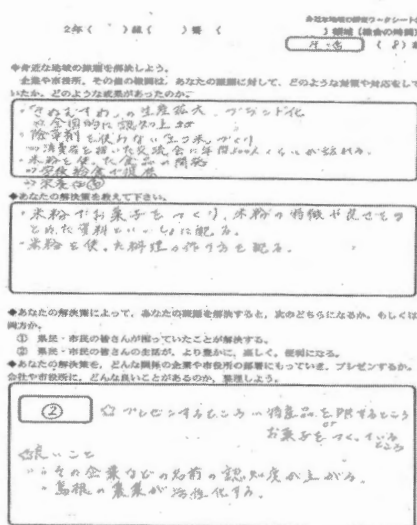 身近な地域の課題ワークシート
2年（　）組（　）番（　）
領域（社会の時間）
（8）
◆身近な地域の課題を解決しよう。
企業や市役所、その他の機関は、あなたの課題に対して、どのような対策や対応をして
いたか。どのような成果があったのか。
・「きぬむすめ」の生産拡大、ブランド化
⇒全国的に認知上昇
・除草剤を使わない"エコ米"づくり
⇒消費者を招いた交流会に年間500人くらいが訪れる。
・米粉を使った食品の開発
⇒学校給食で提供
◆あなたの解決策を教えて下さい。
・米粉でお菓子をつくり、米粉の特徴や良さをま
とめた資料といっしょに配る。
・米粉を使った料理の作り方を配る。
◆あなたの解決策によって、あなたの課題を解決すると、次のどちらになるか。もしくは
両方か。
① 県民・市民の皆さんが困っていたことが解決する。
② 県民・市民の皆さんの生活が、より豊かに、楽しく、便利になる。
◆あなたの解決策を、どんな関係の企業や市役所の部署にもっていき、プレゼンするか。
会社や市役所に、どんな良いことがあるのか、整理しよう。
② ☆プレゼンするところ⇒特産品をPRするところ
or
お菓子をつくっている
ところ
☆良いこと
⇒・その企業などの名前の認知度が上がる。
・島根の農業が活性化する。